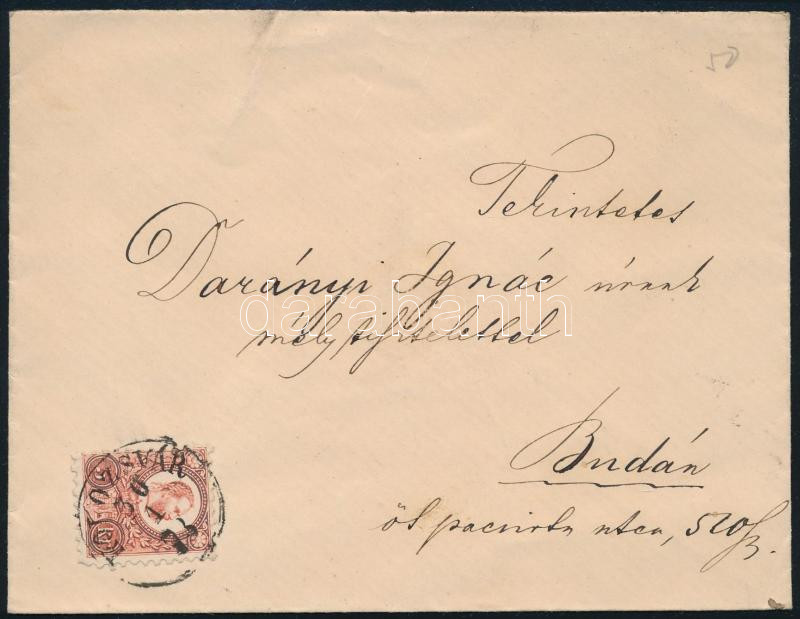 50
Tekintetes
Darányi Ignác úrnak
mély tisztelettel
Budán
öt pacsirta utca, 520/sz.
KOLOZSVÁR
darabanth